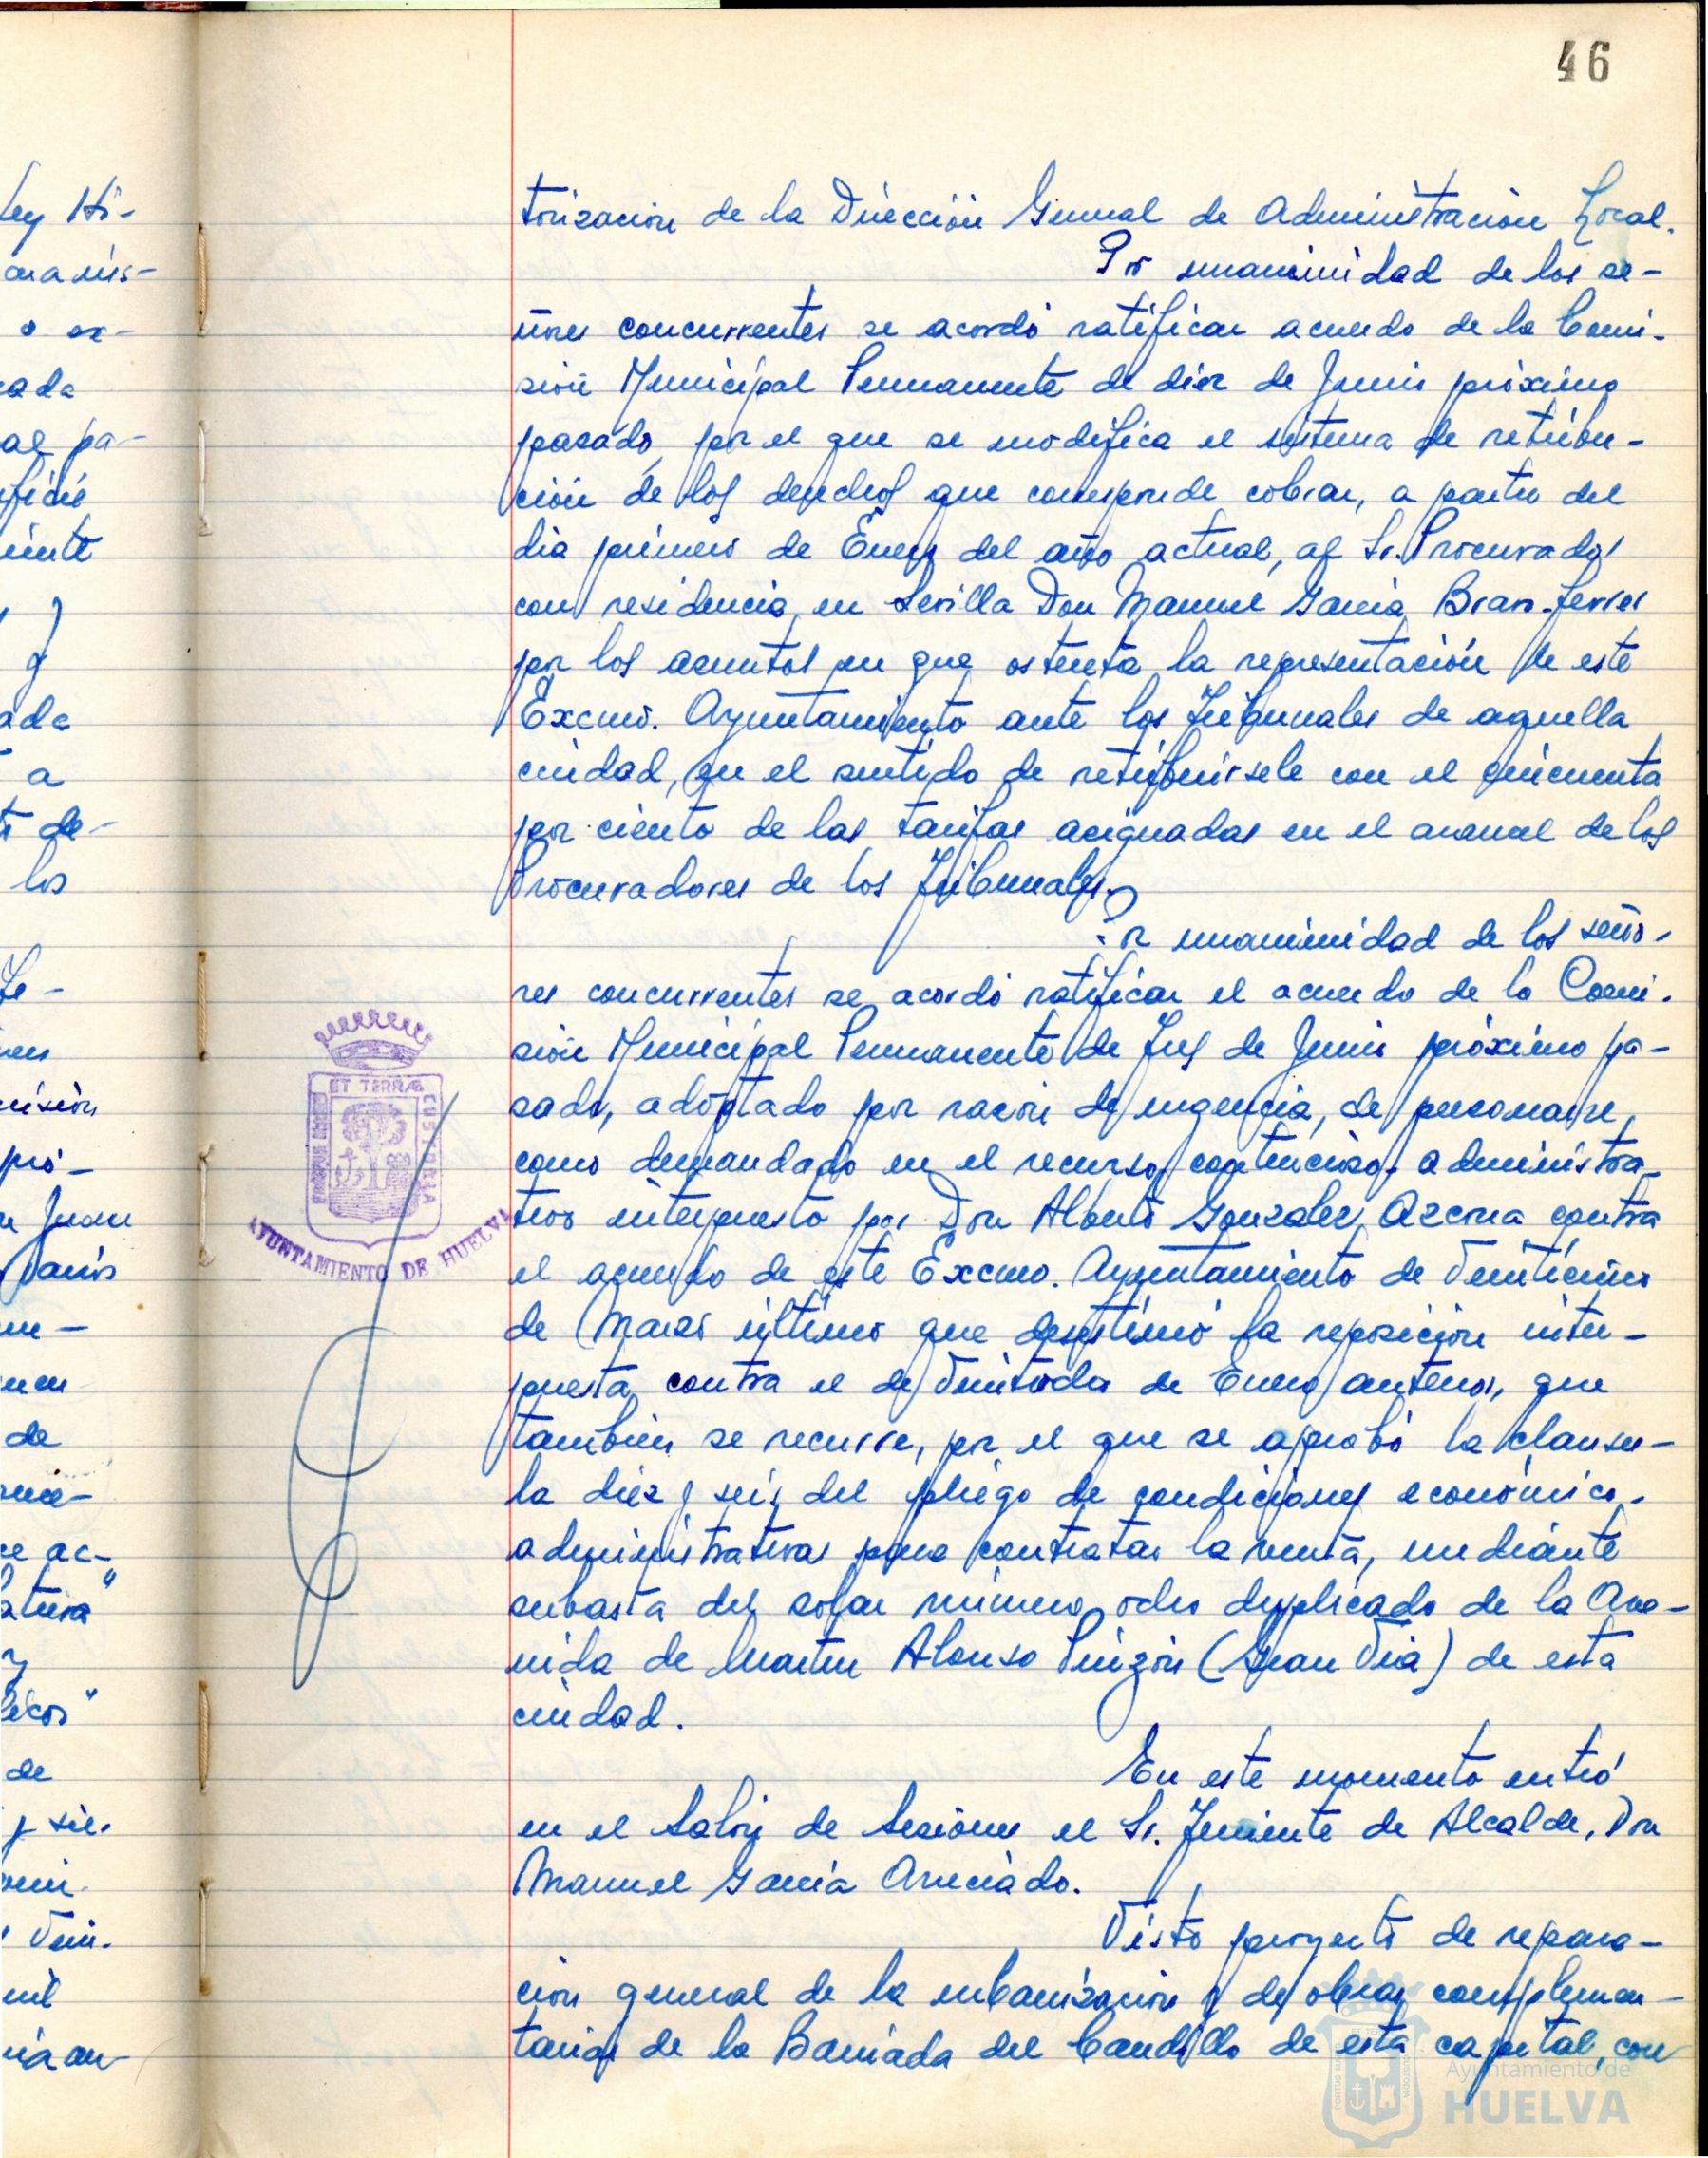 46
torizacion de la Dirección General de Administración Local.
Por unanimidad de los se-
ñores concurrentes se acordó ratificar acuerdo de la Comi-
sión Municipal Permanente de diez de Junio próximo
pasado, por el que se modifica el sistema de retribu-
ción de los derechos que corresponde cobrar, a partir del
dia primero de Enero del año actual, al Sr. Procurador
con residencia en Sevilla Don Manuel Garcia Bravo-Ferrer
por los asuntos en que ostenta la representación de este
Excmo. Ayuntamiento ante los Tribunales de aquella
ciudad, en el sentido de retribuirsele con el cincuenta
por ciento de las tarifas asignadas en el arancel de los
Procuradores de los Tribunales.
Por unanimidad de los seño-
res concurrentes se acordó ratificar el acuerdo de la Comi-
sión Municipal Permanente de tres de Junio próximo pa-
sado, adoptado por razon de urgencia, de personarse
como demandado en el recurso contencioso-administra-
tivo interpuesto por Don Alberto Gonzalez Azcona contra
el acuerdo de este Excmo. Ayuntamiento de Veinticinco
de Marzo último que desestimó la reposicion inter-
puesta contra el de Veintiocho de Enero anterior, que
tambien se recurre, por el que se aprobó la clausu-
la diez y seis del pliego de condiciones económico-
administrativas para contratar la venta, mediante
subasta del solar número ocho duplicado de la Ave-
nida de Martin Alonso Pinzón (Gran Via) de esta
ciudad.
En este momento entró
en el Salon de Sesiones el Sr. Teniente de Alcalde, Don
Manuel Garcia Aruciado.
Visto proyecto de repara-
cion general de la urbanizacion y de obras complemen-
tarias de la Barriada del Caudillo de esta capital, con
PORTUS MARIS ET TERRAE CUSTODIA
AYUNTAMIENTO DE HUELVA
Ayuntamiento de
HUELVA